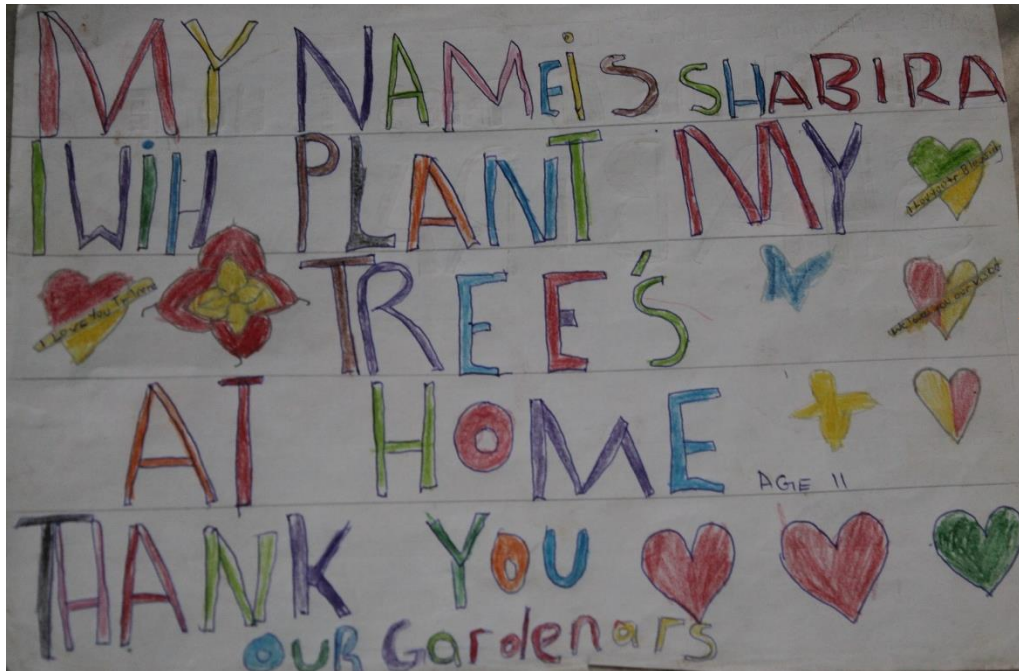 MY NAMEiS SHABIRA
I WiH PLANT MY
I LOVE YOU
TREE'S
AT HOME
AGE 11
THANK YOU
OUR Gardenars